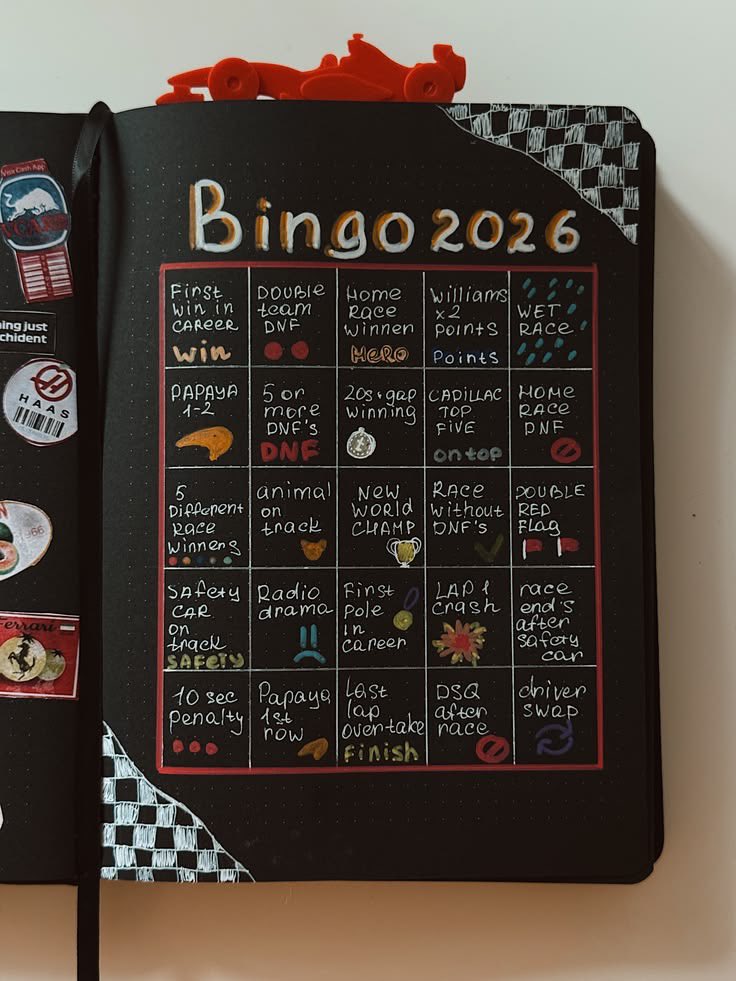 Visa Cash App
ing just
chident
HAAS
errari
Bingo 2026
First
win in
CAREER
win
DOUBLE
team
DNF
Home
Race
winner
HERO
Williams
x2
points
Points
WET
RACE
PAPAYA
1-2
5 or
more
DNF's
DNF
20s+gap
winning
CADILLAC
TOP
FIVE
on top
HOME
RACE
DNF
5
Different
Race
winners
animal
on
track
NEW
WORLD
CHAMP
RACE
without
DNF's
DOUBLE
RED
Flag
SAFETY
CAR
on
track
SAFETY
Radio
drama
First
Pole
in
career
LAP 1
crash
race
end's
after
safety
car
10 sec
penalty
Papaya
1st
row
Last
lap
overtake
Finish
DSQ
after
race
driver
swap